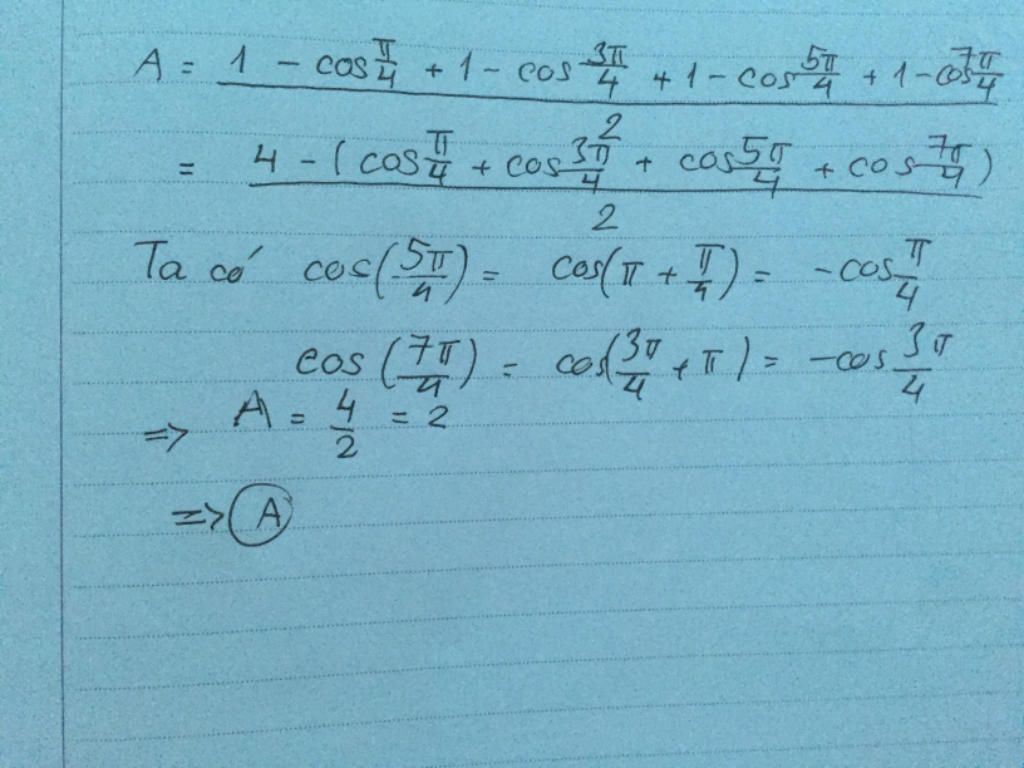 A = (1 - cos π/4 + 1 - cos 3π/4 + 1 - cos 5π/4 + 1 - cos 7π/4) / 2
= (4 - (cos π/4 + cos 3π/4 + cos 5π/4 + cos 7π/4)) / 2
Ta có cos(5π/4) = cos(π + π/4) = -cos π/4
cos(7π/4) = cos(3π/4 + π) = -cos 3π/4
=> A = 4/2 = 2
=> A